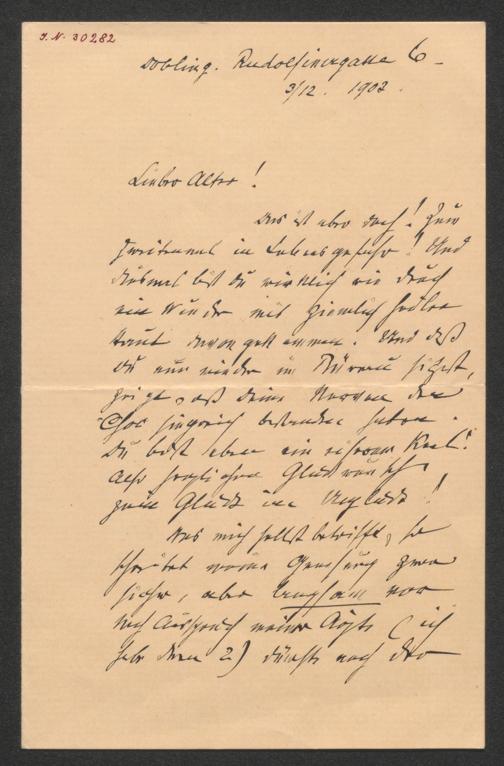 J.N. 30282
Döbling. Rudolfinergasse 6
3/12. 1902.
Lieber Alter!
Das ist aber doch! Zum
zweitenmal in Lebensgefahr! Und
diesmal bist Du wirklich wie durch
ein Wunder mit ziemlich heiler
Haut davon gekommen. Und daß
Du nun wieder im Bureau sitzest,
zeigt, daß Deine Nerven den
Choc siegreich bestanden haben.
Du bist eben ein eiserner Kerl!
Also herzlichen Glückwunsch
zum Glück im Unglück!
Was mich selbst betrifft, so
schreitet meine Genesung zwar
sicher, aber langsam vor
nach Ausspruch meiner Ärzte (ich
habe deren 2) dürfte nach der